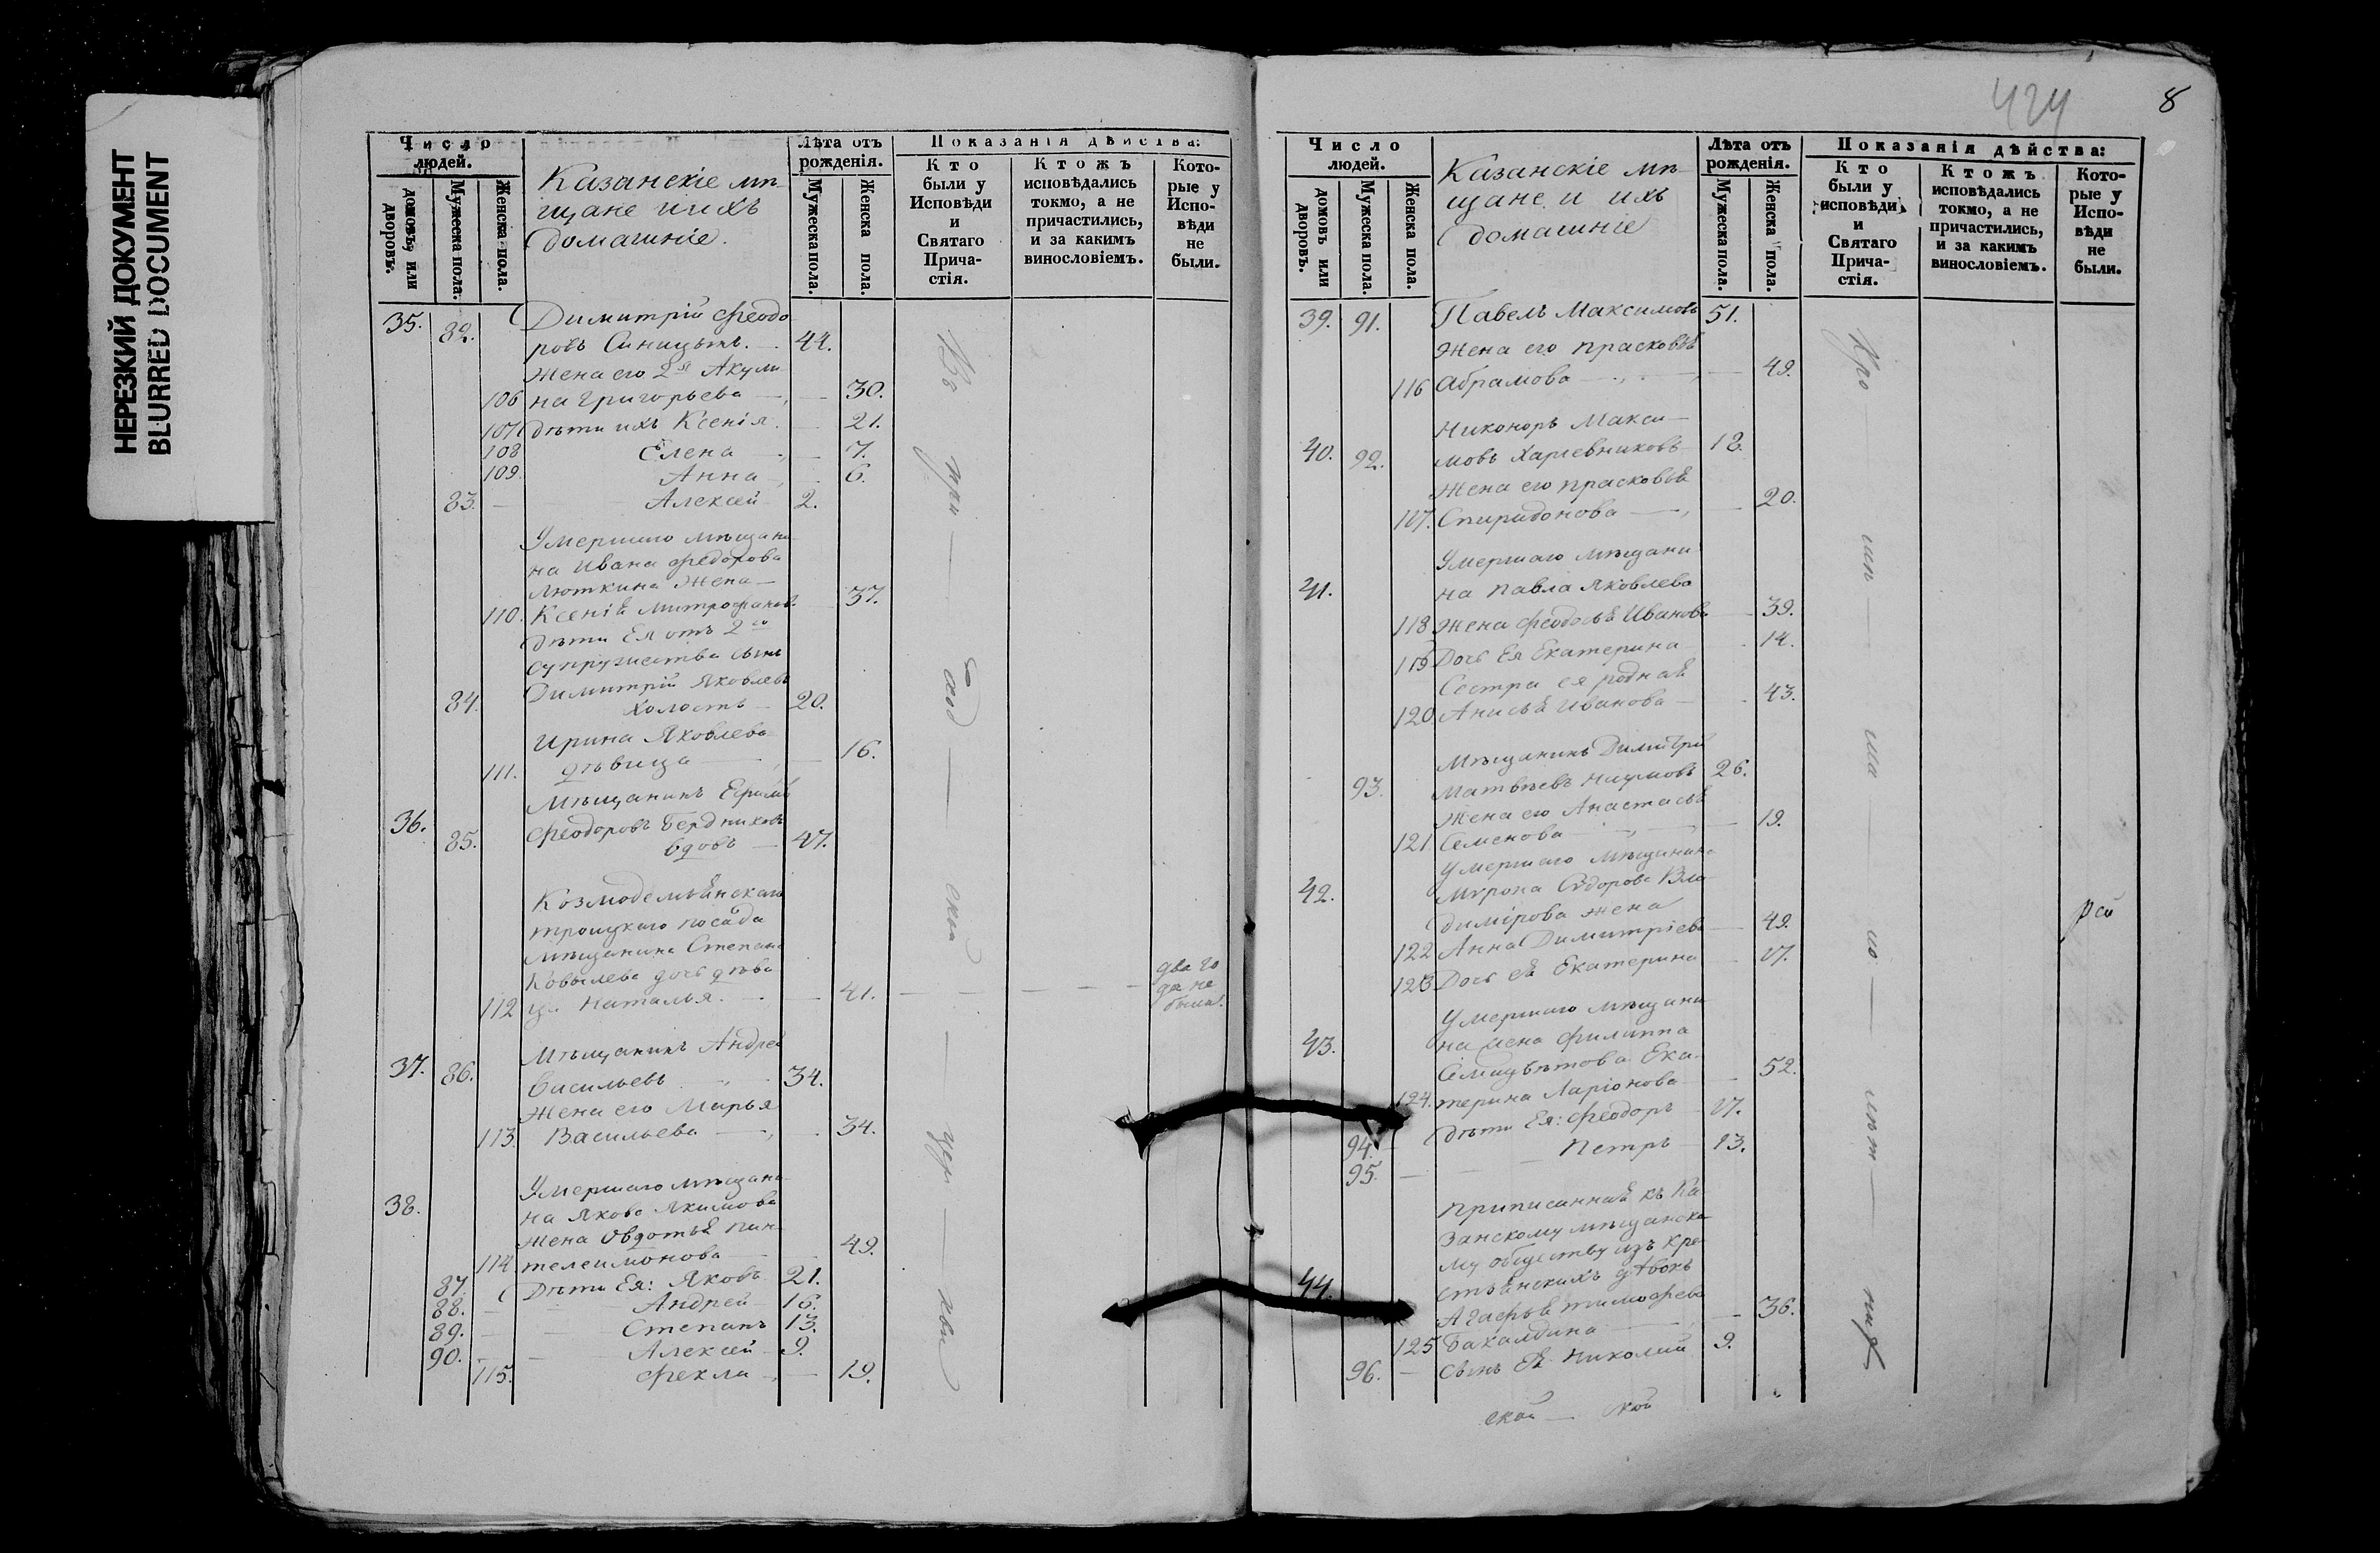 НЕРЕЗКИЙ ДОКУМЕНТ
BLURRED DOCUMENT
Число людей.
домовъ, или дворовъ.
Мужеска пола.
Женска пола.
Казанскіе мѣ-
щане и ихъ
домашніе.
Лѣта отъ рожденія.
Мужеска пола.
Женска пола.
Показанія дѣйства:
Кто были у Исповѣди и Святаго Прича-стія.
Ктожъ исповѣдались токмо, а не причастились, и за какимъ винословіемъ.
Кото-рые у Испо-вѣди не были.
35. 82. Димитрій Феодо
ровъ Синицынъ. 44.
Жена его 2я Акули
106 на Григорьева 30.
107 Дѣти ихъ Ксенія. 21.
108 Елена 7.
109. Анна 6.
83. Алексей 2.
Умершаго мѣщани
на Ивана Федорова
Люткина Жена
110. Ксенія Митрофанов. 37.
Дѣти Ея отъ 2го
супружества сынъ
Димитрій Яковлевъ
84. холостъ 20.
Ирина Яковлева
111. дѣвица 16.
Мѣщанинъ Ефимъ
36. 85. Феодоровъ Бердниковъ
вдовъ 47.
Козмодемьянскаго
троицкаго посада
мѣщанина Степана
Ковылева дочь дѣви
112 ца Наталья. 41.
два го
да не
была.
Мѣщанинъ Андрей
37. 86. Васильевъ 34.
Жена его Марья
113. Васильева 34.
Умершаго мѣщани
38. на Якова Якимова
Жена Овдотья Пан
114 телеимонова 49.
87. Дѣти Ея: Яковъ 21.
88. Андрей 16.
89. Степанъ 13.
90. Алексей 9.
115. Фекла 19.
424
8
Число людей.
домовъ или дворовъ.
Мужеска пола.
Женска пола.
Казанскіе мѣ-
щане и ихъ
домашніе
Лѣта отъ рожденія.
Мужеска пола.
Женска пола.
Показанія дѣйства:
Кто были у исповѣди и Святаго Прича-стія.
Ктожъ исповѣдались токмо, а не причастились, и за какимъ винословіемъ.
Кото-рые у Испо-вѣди не были.
39. 91. Павелъ Максимовъ 51.
Жена его Прасковья
116 Абрамова 49.
Никоноръ Макси
40. 92. мовъ Харчевниковъ 18.
Жена его Прасковья
117. Спиридонова 20.
Умершаго мѣщани
41. на Павла Яковлева
118 Жена Феодосья Иванова 39.
119 Дочь Ея Екатерина 14.
Сестра ея родная
120 Анисья Иванова 43.
Мѣщанинъ Димитрій
93. Матвѣевъ Наумовъ 26.
Жена его Анастасья
121. Семенова 19.
Умершаго мѣщанина
42. Мирона Сидорова Вла
димірова жена
122 Анна Димитріева 49.
123 Дочь ея Екатерина 17.
Умершаго мѣщани
43. на Филиппа
Семицвѣтова Ека
124. терина Ларіонова 52.
94. Дѣти Ея: Феодоръ 17.
95. Петръ 13.
Приписанная къ Ка
занскому мѣщанско
му обществу изъ кре
44. стьянскихъ дѣвокъ
Агафья Тимофеева
125 Бахалдина 36.
96. Сынъ Ея Николай 9.
ской кой